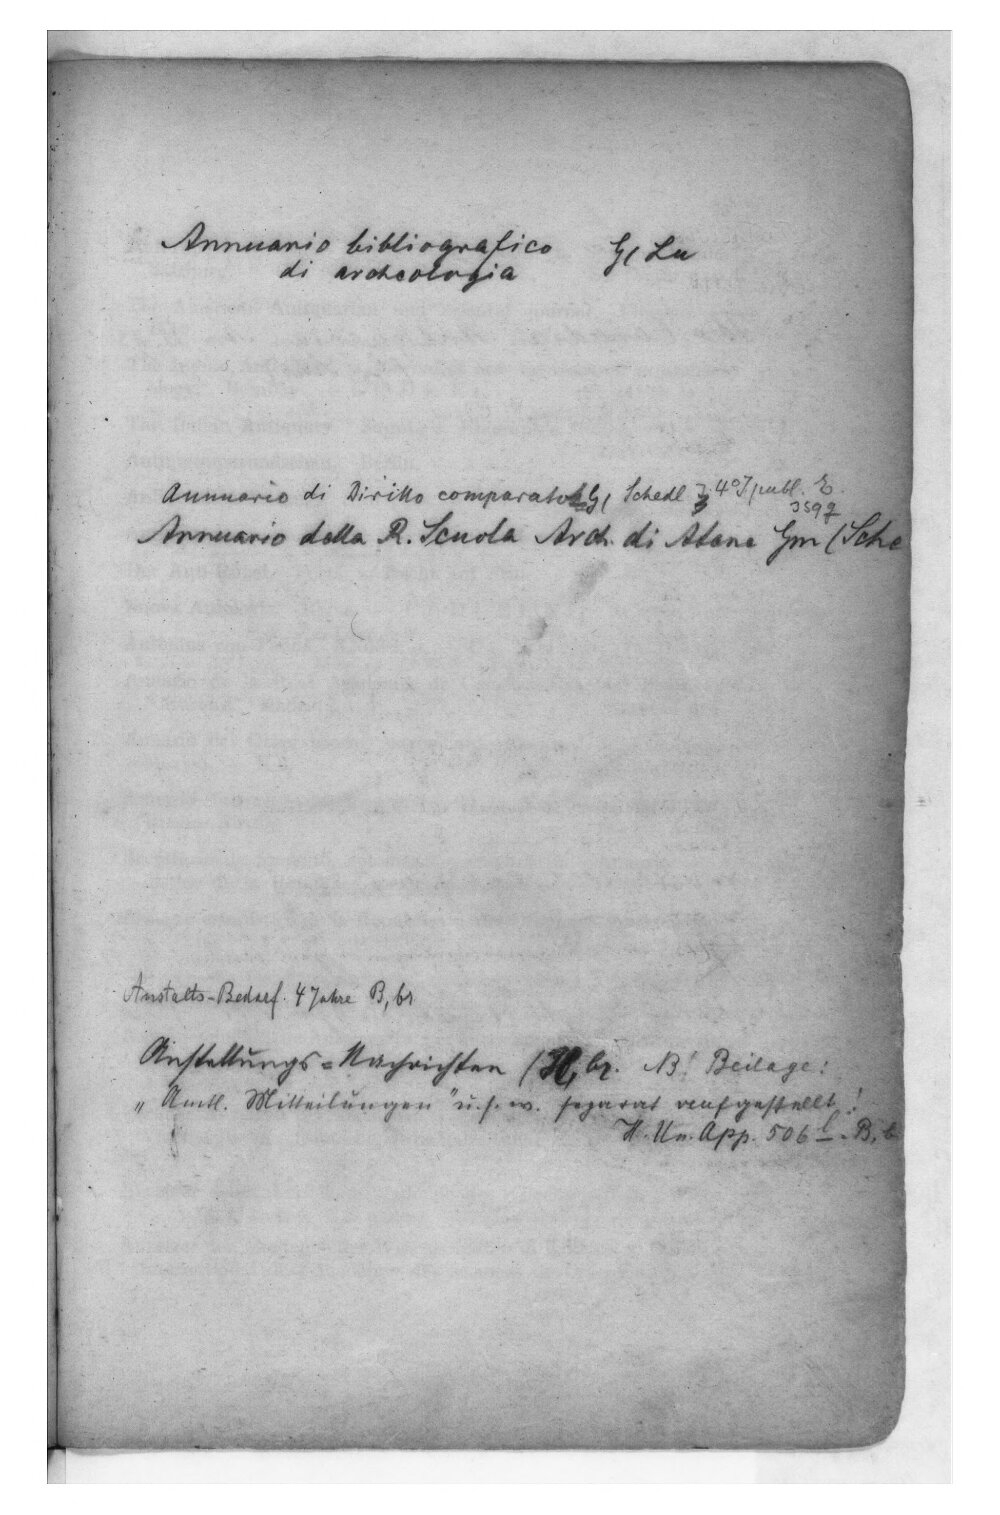 Annuario bibliografico G, Lu
di archeologia
Annuario di Diritto comparato G, Schedl 4° J. publ. E.
359 z
Annuario della R. Scuola Arch. di Atene Gm (Sche
Anstalts-Bedarf. 4 Jahre B, br
Anstellungs-Nachrichten (H, br. NB! Beilage:
„Amtl. Mitteilungen" u. s. w. separat aufgestellt!
H. Un. App. 506 f. B, b